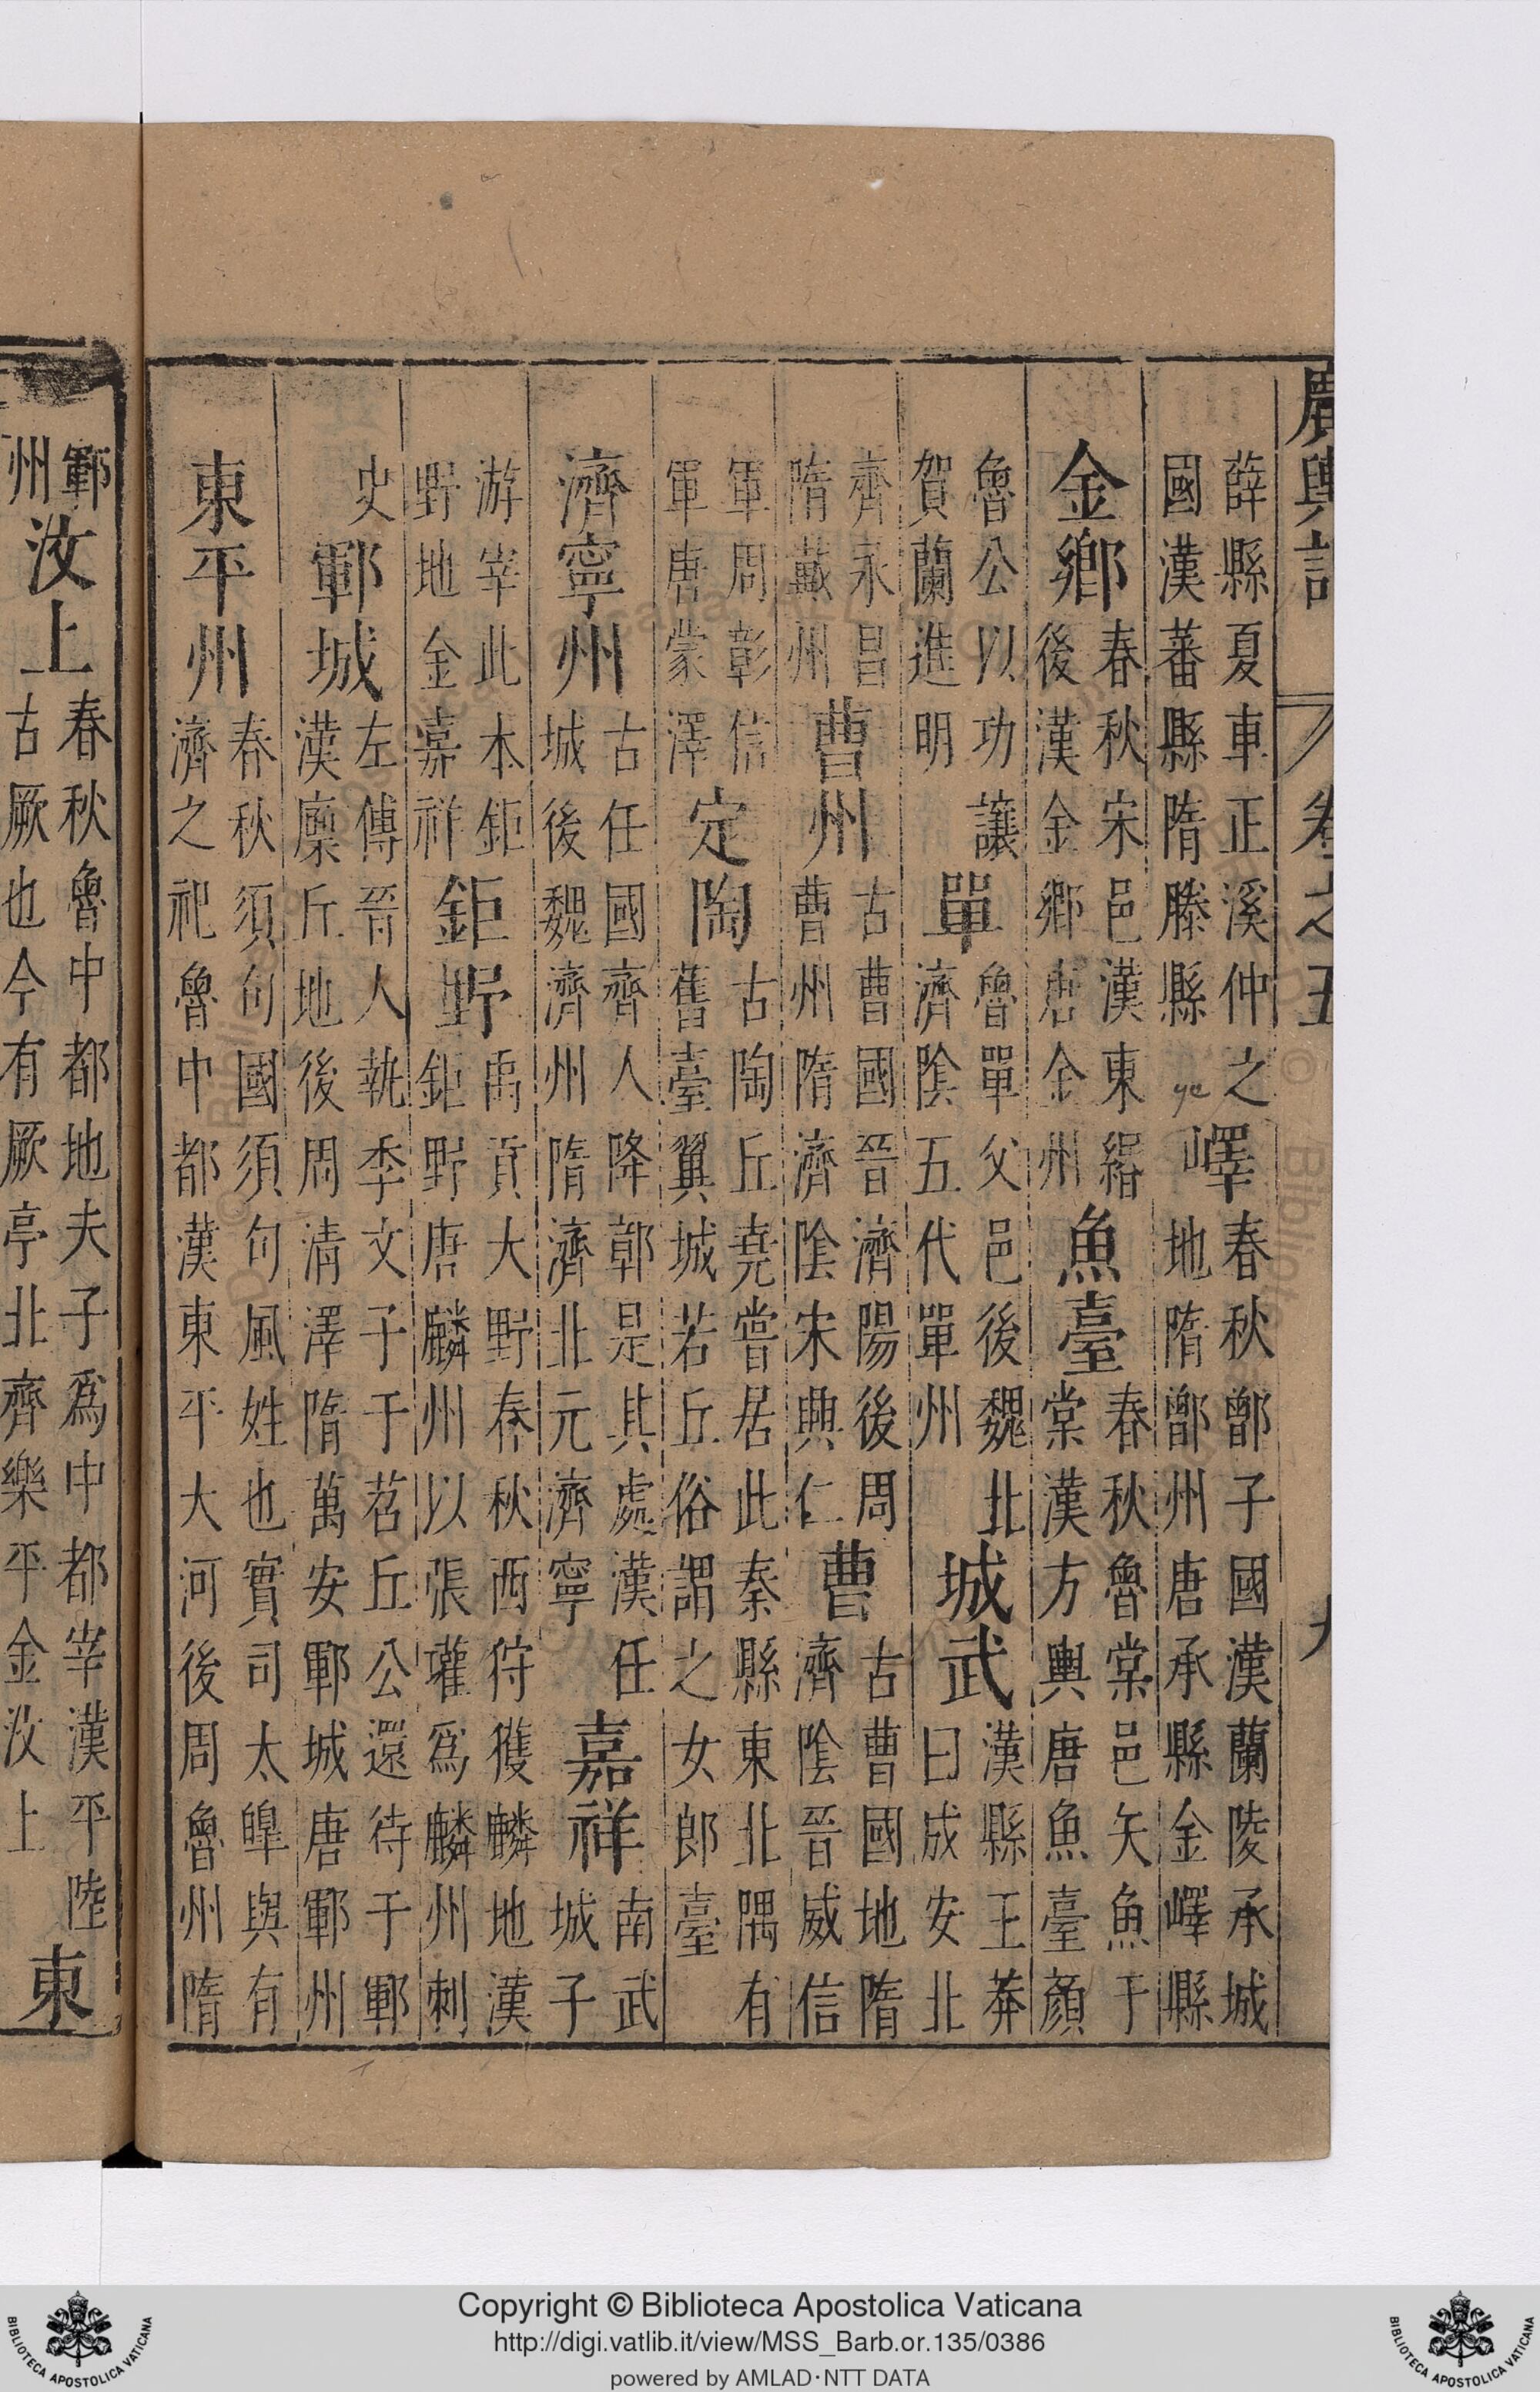 廣輿記 卷之五
薛縣夏車正溪仲之
國漢蕃縣隋滕縣
ye
嶧
春秋鄫子國漢蘭陵承城
地隋鄫州唐承縣金嶧縣
金鄉
春秋宋邑漢東緡
後漢金鄉唐金州
魚臺
春秋魯棠邑矢魚于
棠漢方輿唐魚臺顏
魯公以功讓
賀蘭進明
單
魯單父邑後魏北
濟陰五代單州
城武
漢縣王莽
曰成安北
齊永昌
隋戴州
曹州
古曹國晉濟陽後周
曹州隋濟陰宋興仁
曹
古曹國地隋
濟陰晉威信
軍周彰信
軍唐蒙澤
定陶
古陶丘堯嘗居此秦縣東北隅有
舊臺翼城若丘俗謂之女郎臺
濟寧州
古任國齊人降郭是其處漢任
城後魏濟州隋濟北元濟寧
嘉祥
南武
城子
游宰此本鉅
野地金嘉祥
鉅野
禹貢大野春秋西狩獲麟地漢
鉅野唐麟州以張瓘爲麟州刺
史
鄆城
左傳晉人執季文子于苕丘公還待于鄆
漢廩丘地後周清澤隋萬安鄆城唐鄆州
東平州
春秋須句國須句風姓也實司太皞與有
濟之祀魯中都漢東平大河後周魯州隋
鄆
州
汶上
春秋魯中都地夫子爲中都宰漢平陸
古厥也今有厥亭北齊樂平金汶上
東
Copyright © Biblioteca Apostolica Vaticana
http://digi.vatlib.it/view/MSS_Barb.or.135/0386
powered by AMLAD·NTT DATA
BIBLIOTECA APOSTOLICA VATICANA
BIBLIOTECA APOSTOLICA VATICANA